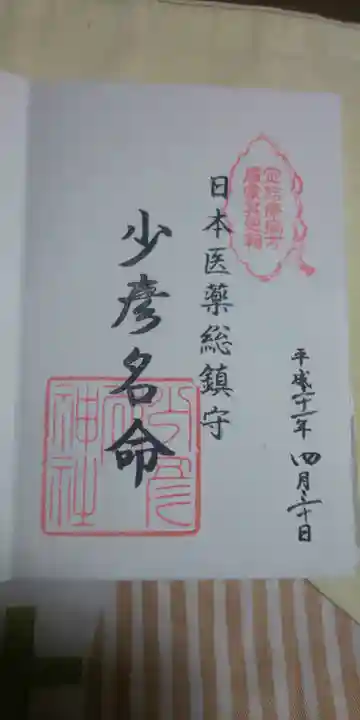 日本医薬総鎮守
少彦名命
少彦名神社
平成三十一年 四月三十日